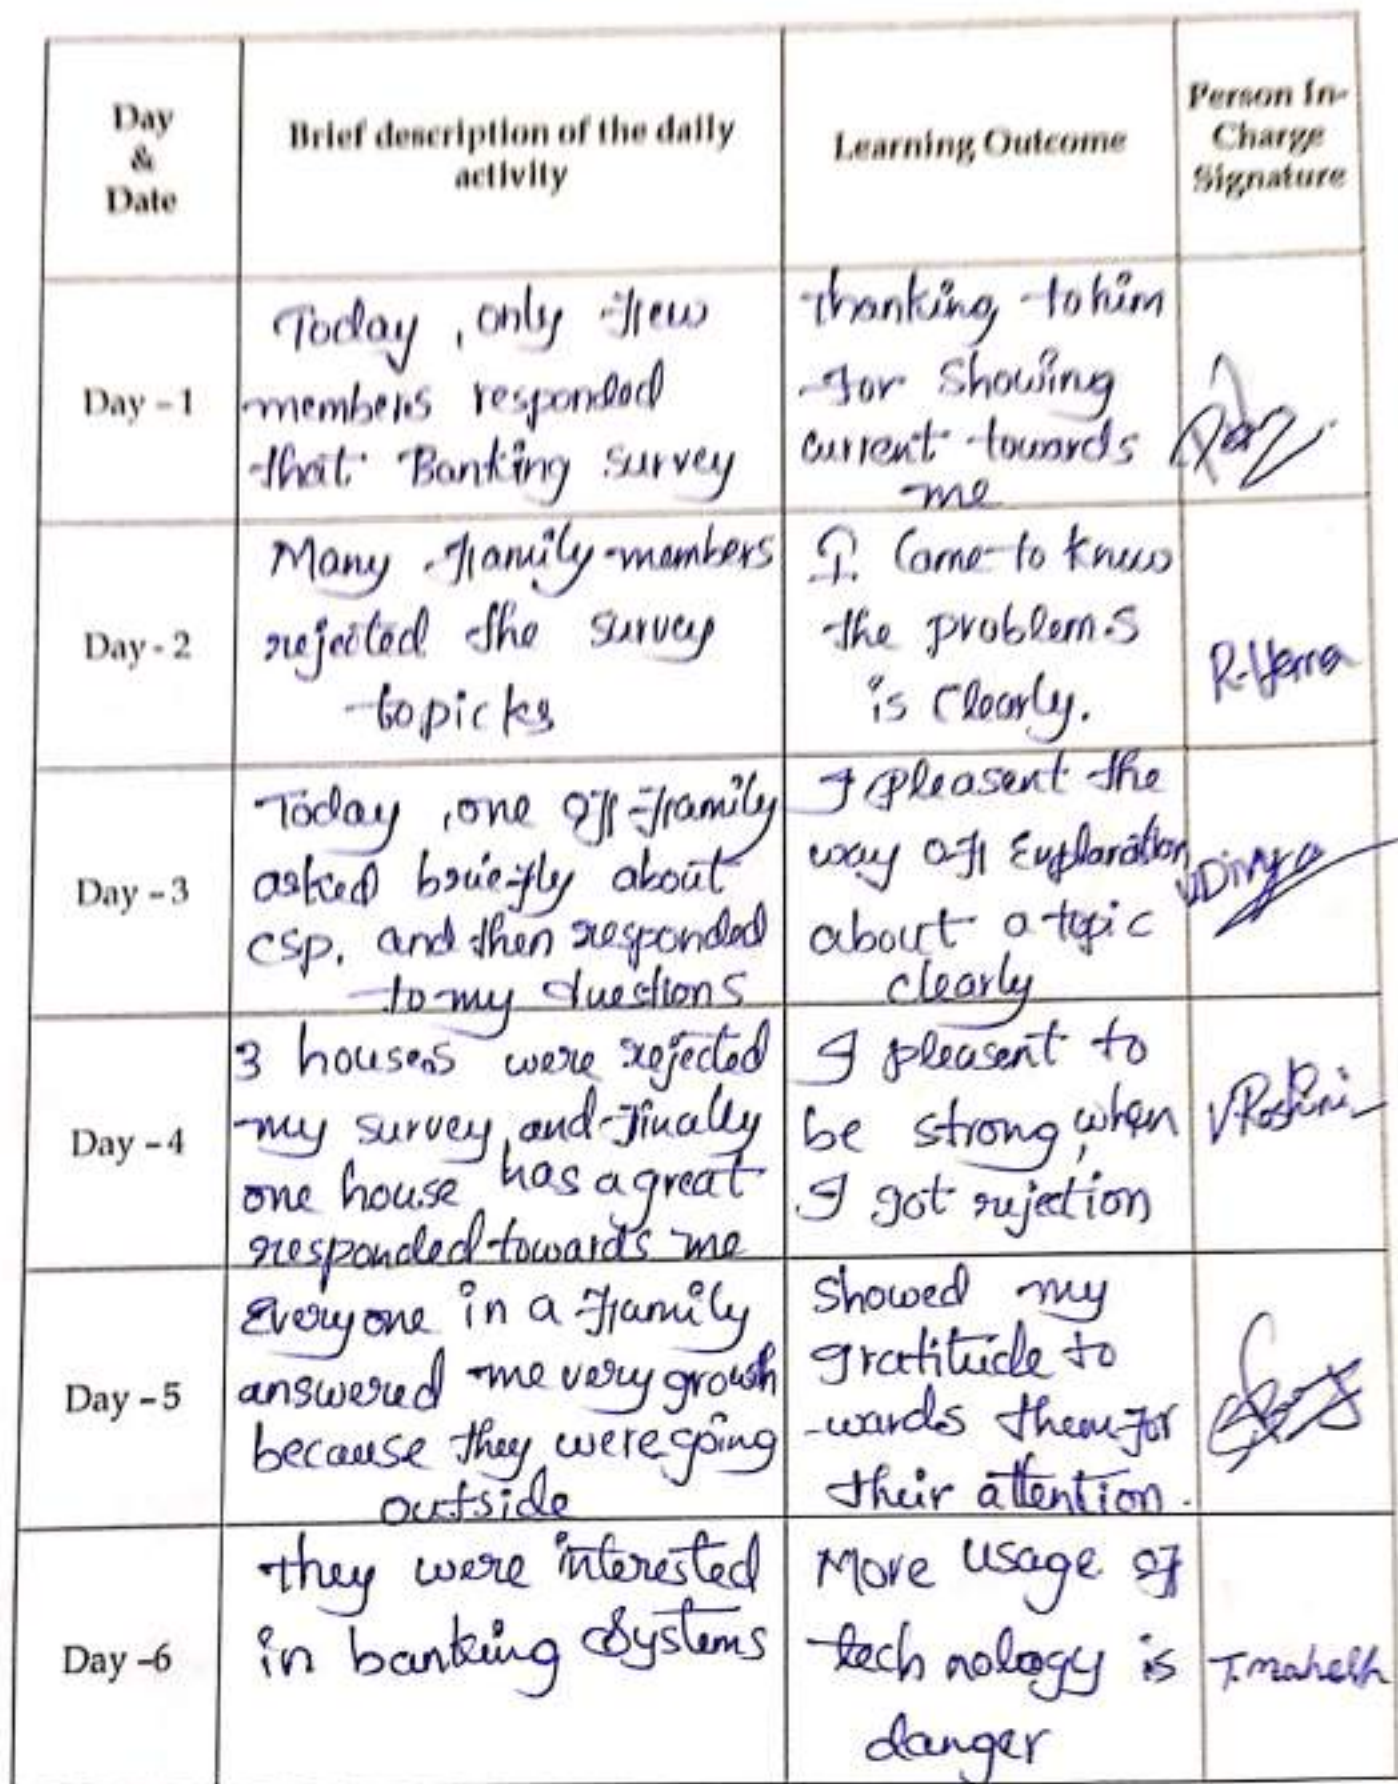 Day
&
Date
Brief description of the daily
activity
Learning Outcome
Person In-
Charge
Signature
Day - 1
Today, only few
members responded
that Banking survey
thanking to him
for Showing
current towards
me
Day - 2
Many family members
rejected the survey
topicks
I Came to know
the problems
is Clearly.
R. Yerra
Day - 3
Today, one off family
asked briefly about
CSP. and then responded
to my questions
I pleasent the
way off Explaration
about a topic
clearly
Divya
Day - 4
3 houses were rejected
my survey, and finally
one house has a great
responded towards me
I pleasent to
be strong, when
I got rejection
V Roshini
Day - 5
Everyone in a family
answered me very growth
because they were going
outside
Showed my
gratitude to
wards them for
their attention.
Day -6
they were interested
in banking Systems
More usage of
tech nology is
danger
T. mahesh